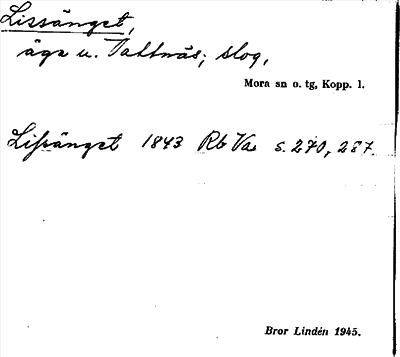 Lissänget,
äga u. Vattnäs; slog,
Mora sn o. tg, Kopp. l.
Lissänget 1843 Rb Va s. 270, 287.
Bror Lindén 1945.